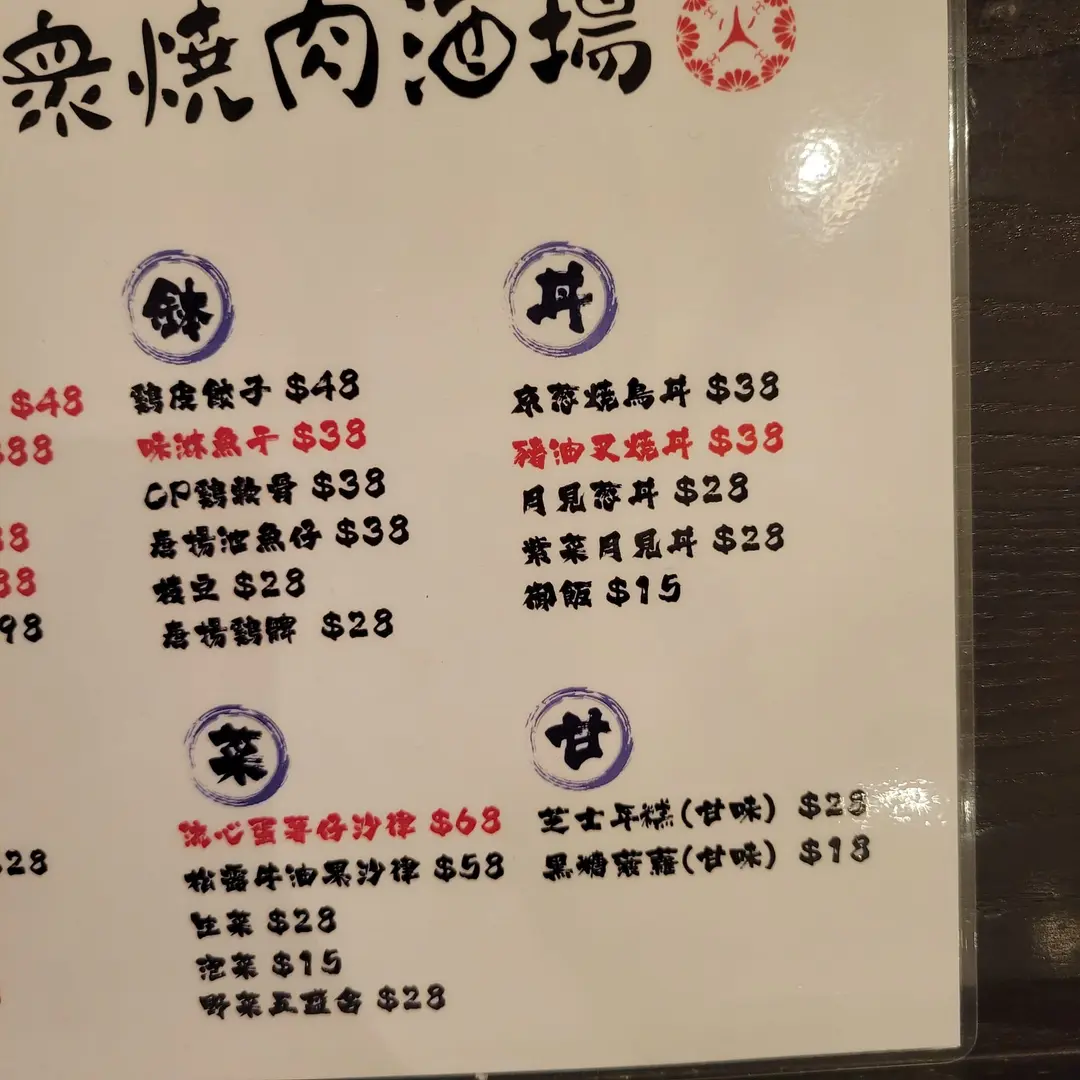 眾燒肉酒場
鉢
$48
$88
鷄皮餃子 $48
味淋魚干 $38
CP鷄軟骨 $38
唐揚油魚仔 $38
枝豆 $28
唐揚鷄髀 $28
98
丼
京葱燒鳥丼 $38
豬油叉燒丼 $38
月見葱丼 $28
紫菜月見丼 $28
御飯 $15
菜
流心蛋薯仔沙律 $68
松露牛油果沙律 $58
生菜 $28
泡菜 $15
野菜五 $28
$28
甘
芝士年糕(甘味) $28
黑糖菠蘿(甘味) $18